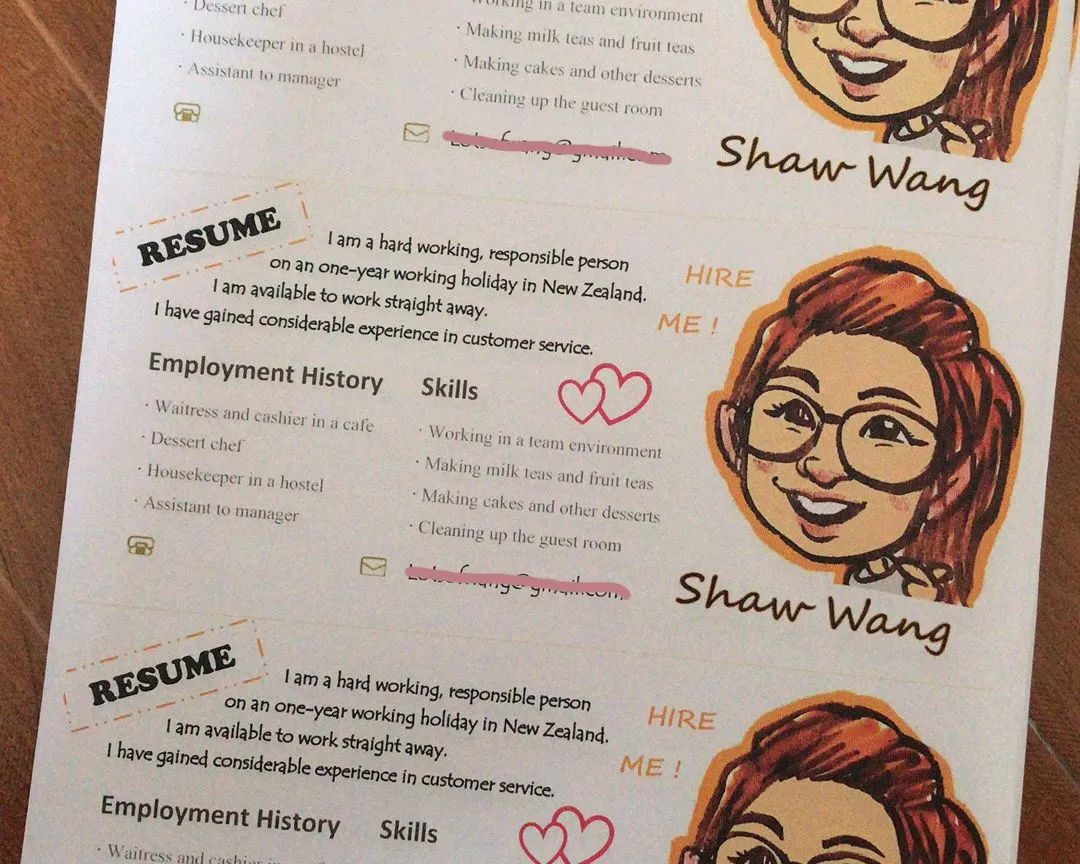 · Dessert chef
· Housekeeper in a hostel
· Assistant to manager
in a team environment
· Making milk teas and fruit teas
· Making cakes and other desserts
· Cleaning up the guest room
Shaw Wang
RESUME
I am a hard working, responsible person
on an one-year working holiday in New Zealand.
I am available to work straight away.
I have gained considerable experience in customer service.
HIRE
ME !
Employment History
· Waitress and cashier in a cafe
· Dessert chef
· Housekeeper in a hostel
· Assistant to manager
Skills
· Working in a team environment
· Making milk teas and fruit teas
· Making cakes and other desserts
· Cleaning up the guest room
Shaw Wang
RESUME
I am a hard working, responsible person
on an one-year working holiday in New Zealand.
I am available to work straight away.
I have gained considerable experience in customer service.
HIRE
ME !
Employment History
· Waitress and
Skills